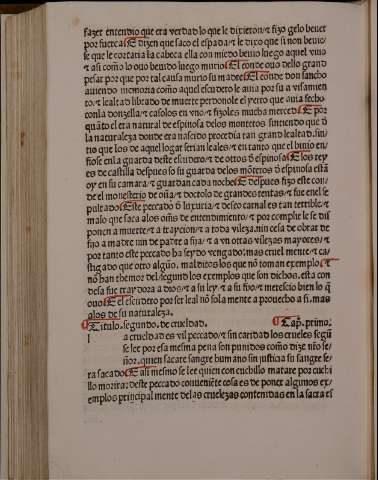 fazer entendio que era verdad lo que le dixeron ⁊ fizo gelo beuer
por fuerca ¶ E dizen que saco el espada ⁊ le dixo que si non beuio/
se que le cortaria la cabeça ella con miedo beuio luego aquel vino
⁊ asi como lo ouo beuido luego murio ¶ El conde ouo dello grand
pesar por que por tal causa murio su madre ¶ El conde don sancho
auiendo memoria como aquel escudero le auia por su avisamien
to ⁊ lealtad librado de muerte perdonole el yerro que auia fecho
con la donzella ⁊ casolos en vno ⁊ fizoles mucha merced ¶ E por
quãto el era natural de espinosa delos monteros sintiendo que d̃
la naturaleza donde era nascido procedia tan grand lealtad. sin/
tio que los de aquel logar serian leales ⁊ en tanto que el biuio en/
fiose en la guarda deste escudero ⁊ de otros d̃ espinosa ¶ E los rey
es de castilla despues fio su guarda delos mõteros d̃ espinosa esta
oy en su camara ⁊ guardan cada noche ¶ E despues fizo este con/
de el monesterio de oña ⁊ doctolo de grandes rentas ⁊ fue enel se
pultado ¶ Este peccado d̃ luxuria ⁊ deseo carnal es tan terrible ⁊
malo que saca alos oms̃ de entendimiento ⁊ por complir le se dis
ponen a muerte ⁊ a traycion ⁊ a toda vileza. nin cesa de obrar de
fijo a madre nin de padre a fija ⁊ a vn ottas vilezas mayores ⁊
por tanto este peccado ha seydo vengado: mas cruel mente ⁊ ca/
stigado que otro algũo. malditos los que nõ toman exemplo ¶ E
nõ han themor del segund los exemplos que son dichos. esta con
desa fue traydora a dios ⁊ a su ley ⁊ a su fijo ⁊ meresció bien lo q̃
ouo ¶ E el escudero por ser leal nõ sola mente a prouecho a si. mas
alos de su naturaleza.
¶ Titulo. segundo. de crueldad. ¶ Cap. primo.
l a crueldad es vil peccado ⁊ sin caridad los crueles segũ
se lee por esa mesma pena son punidos como dize nr̃o se/
ñor. quien sacare sangre humano sin justicia su sangre se/
ra sacado ¶ E ali mesmo se lee quien con cuchillo matare por cuchi
llo morira: deste peccado conueniẽte cosa es de poner algunos ex/
emplos principal mente delas cruelezas contenidas en la sacra es